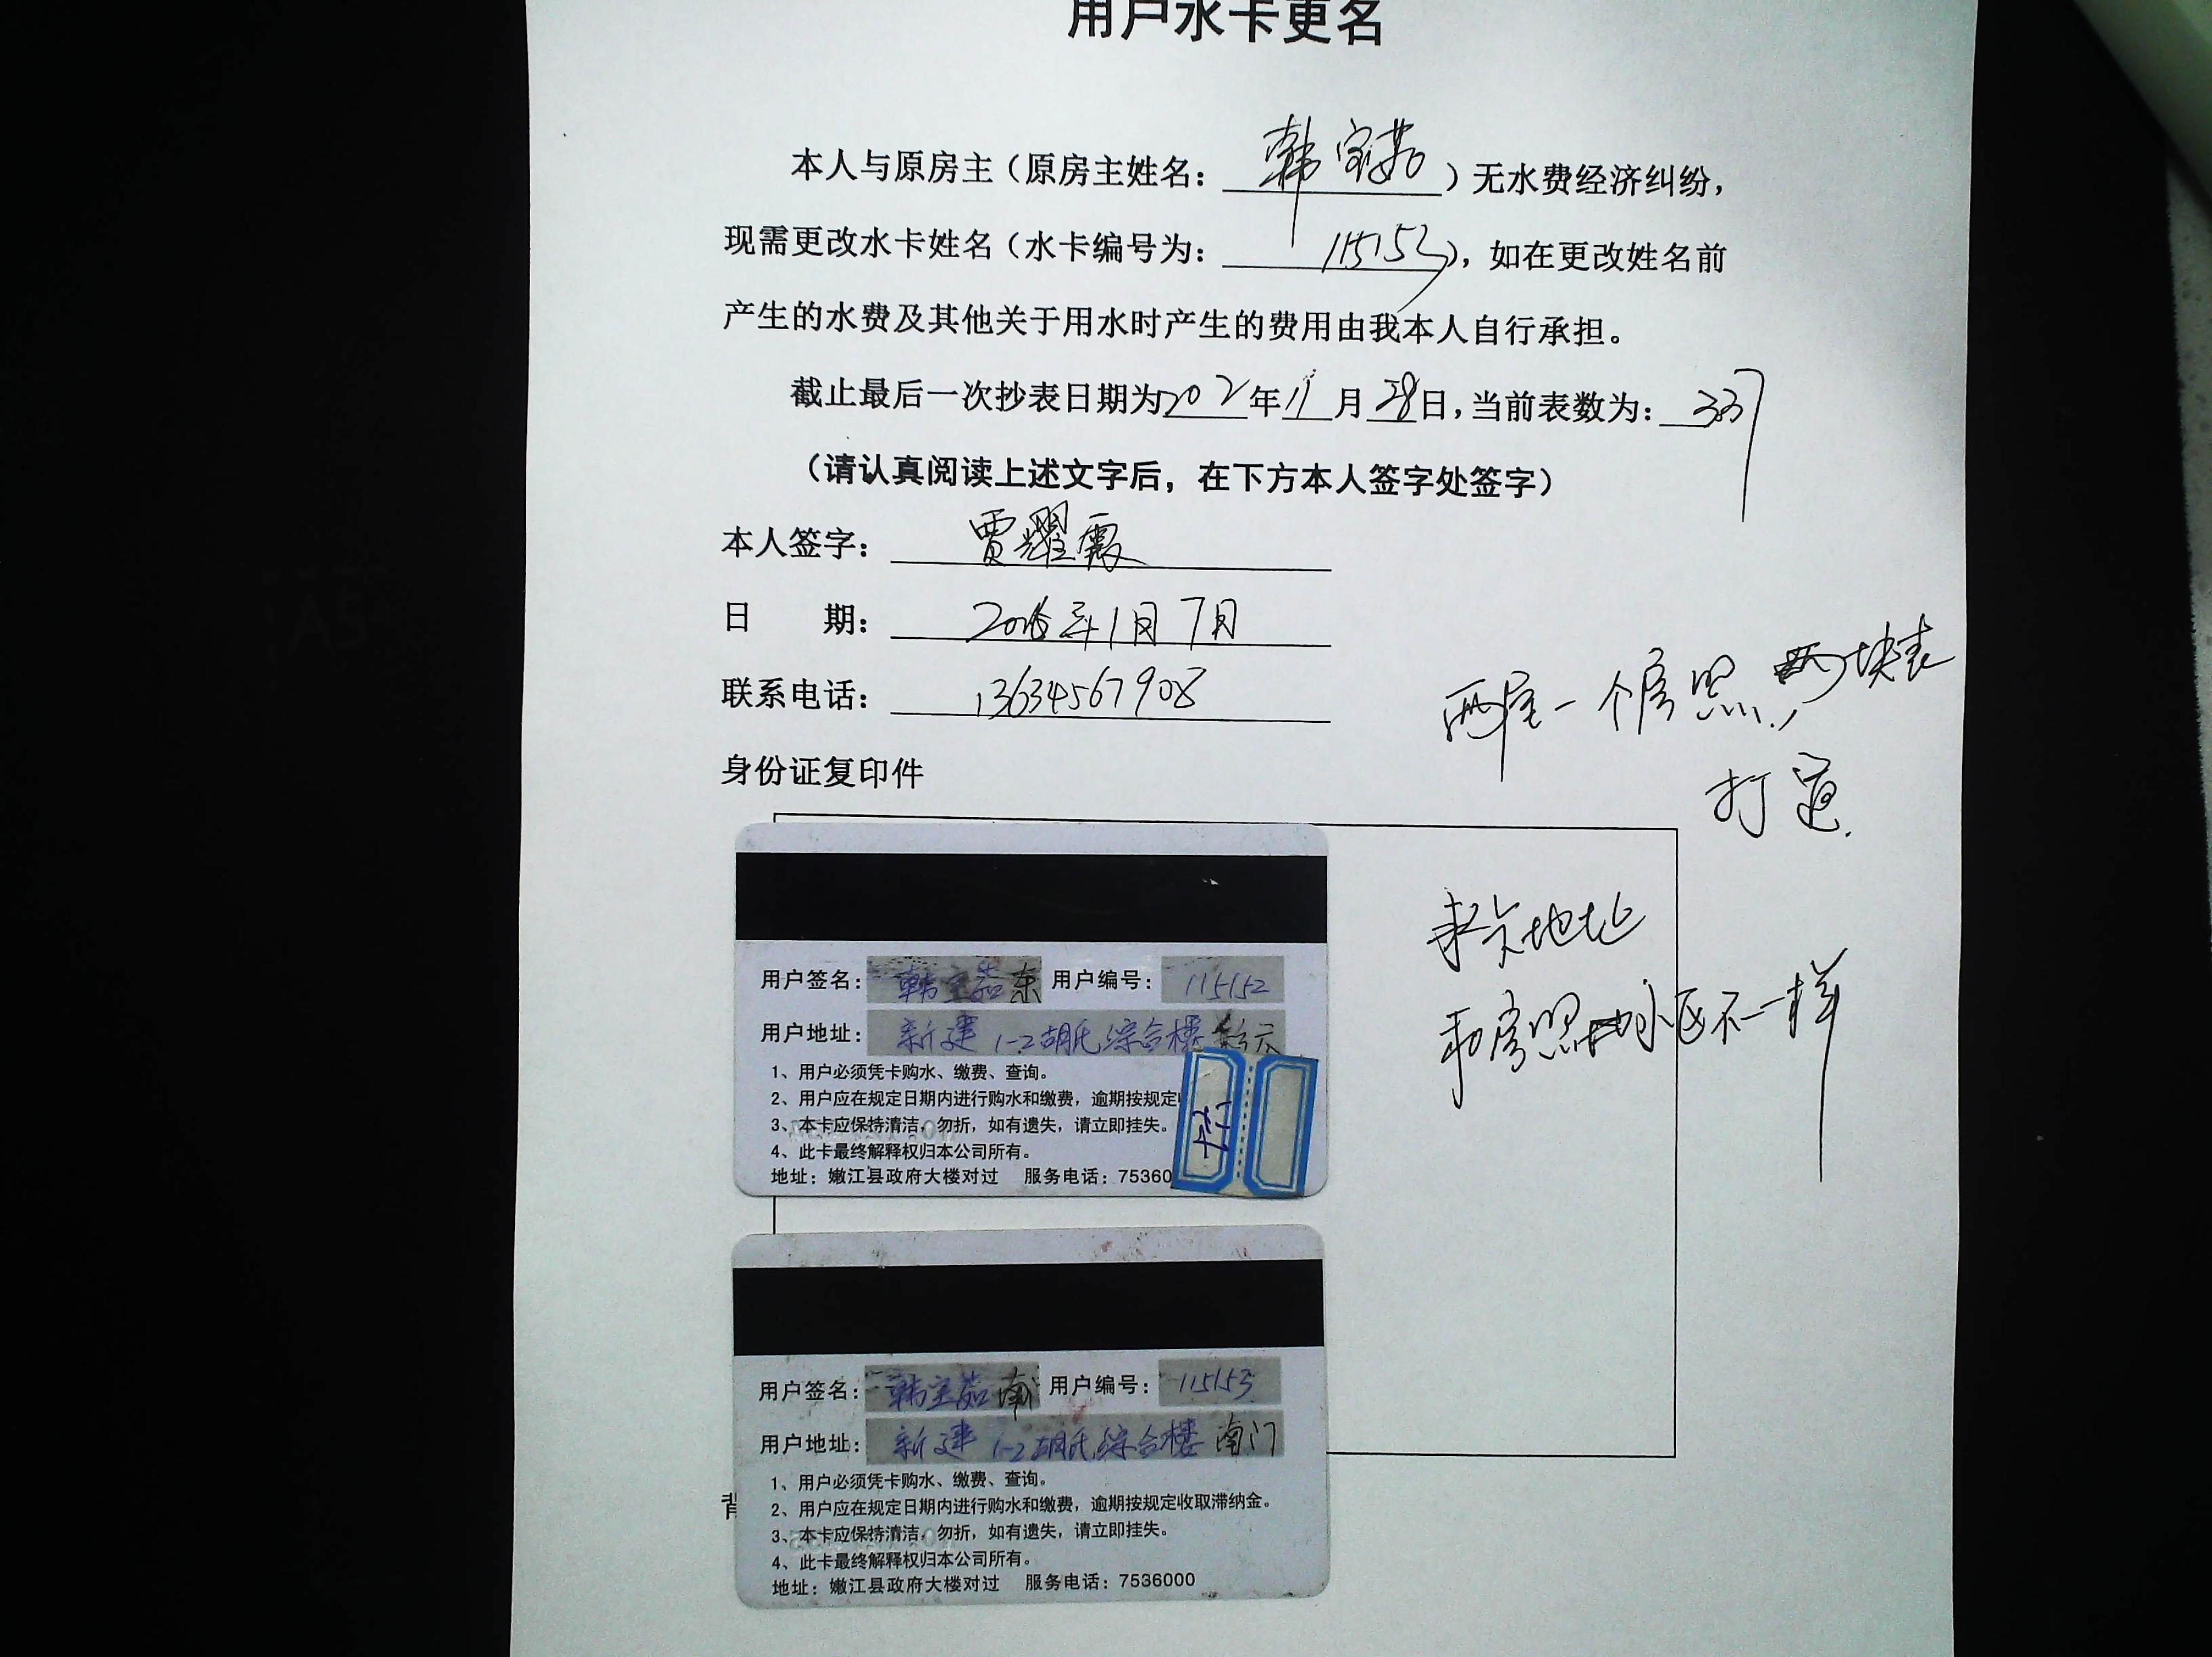 用户水卡更名
本人与原房主（原房主姓名：韩宝茹）无水费经济纠纷，
现需更改水卡姓名（水卡编号为：115153），如在更改姓名前
产生的水费及其他关于用水时产生的费用由我本人自行承担。
截止最后一次抄表日期为202年11月28日，当前表数为：337
（请认真阅读上述文字后，在下方本人签字处签字）
本人签字：贾耀霞
日 期：年1月7日
联系电话：13634567908
两屋一个房照，两块表
打通.
身份证复印件
卡地址
和房照小区不一样
用户签名：韩宝茹东 用户编号：115152
用户地址：新建1-2胡氏综合楼
1、用户必须凭卡购水、缴费、查询。
2、用户应在规定日期内进行购水和缴费，逾期按规定
3、本卡应保持清洁，勿折，如有遗失，请立即挂失。
4、此卡最终解释权归本公司所有。
地址：嫩江县政府大楼对过 服务电话：75360
用户签名：韩宝茹南 用户编号：115153
用户地址：新建1-2胡氏综合楼南门
1、用户必须凭卡购水、缴费、查询。
2、用户应在规定日期内进行购水和缴费，逾期按规定收取滞纳金。
3、本卡应保持清洁，勿折，如有遗失，请立即挂失。
4、此卡最终解释权归本公司所有。
地址：嫩江县政府大楼对过 服务电话：7536000